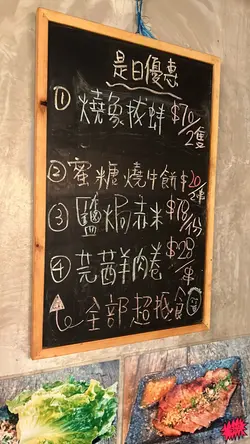 是日優惠
① 燒象拔蚌 $70/2隻
② 蜜糖燒牛餅 $20/2串
③ 鹽焗赤米 $78/份
④ 芫茜羊肉卷 $28/串
全部超抵食